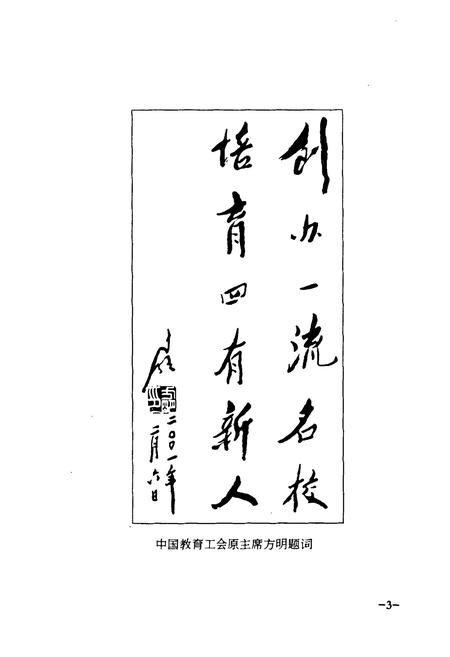 创办一流名校
培育四有新人
二〇〇一年
二月六日
中国教育工会原主席方明题词
-3-